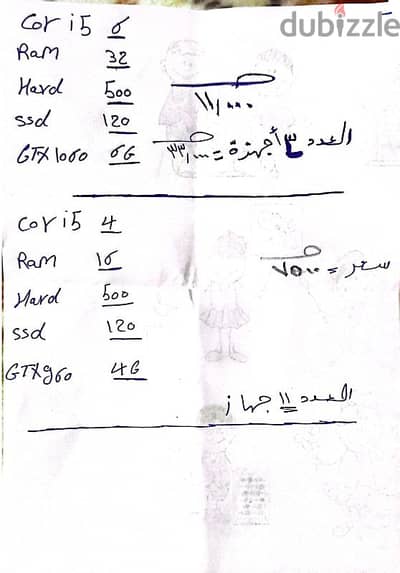 dubizzle
Cor i5 6
Ram 32
Hard 500
١١,٠٠٠
ssd 120
العدد ٣ أجهزة = ٣٣,٠٠٠
GTX 1060 6G
Cor i5 4
Ram 16
سعر = ٧٥٠٠
Hard 500
ssd 120
GTX960 4G
العدد ١١ جهاز